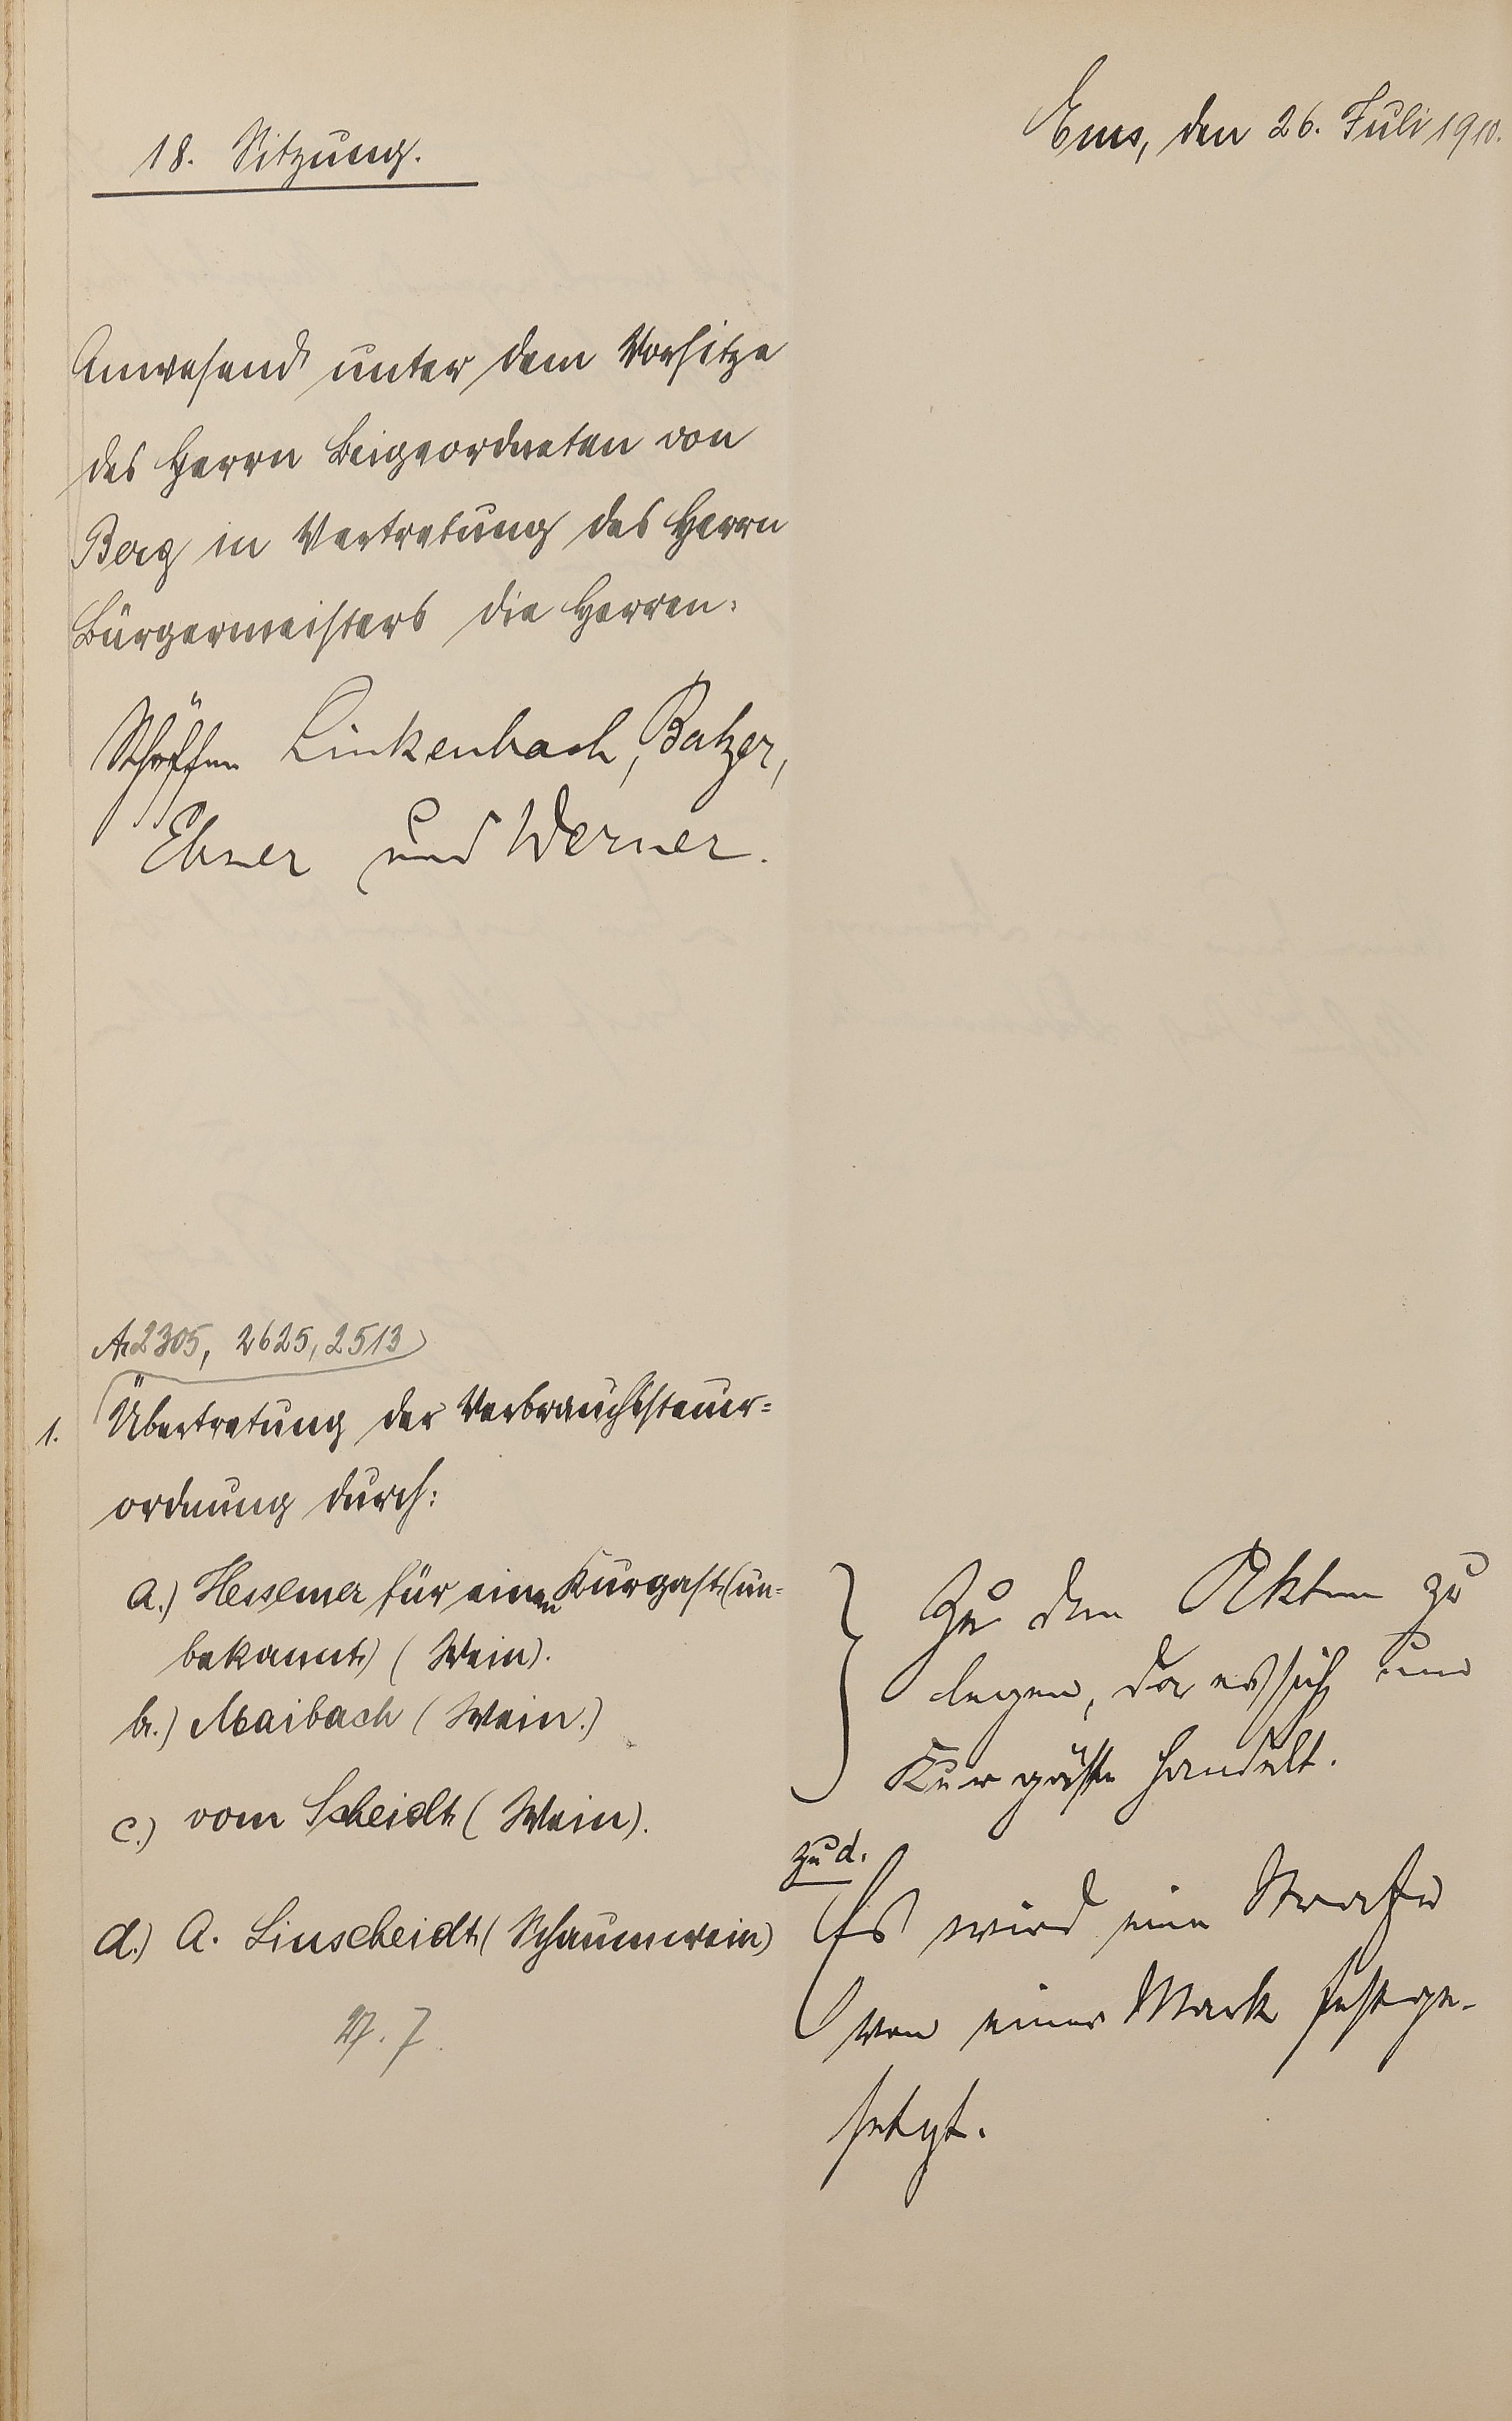 Ems, den 26. Juli 1910.
18. Sitzung.
Anwesend unter dem Vorsitze
des Herrn Beigeordneten von
Berg in Vertretung des Herrn
Bürgermeisters die Herren:
Schöffen Linkenbach, Balzer,
Ebner und Werner.
A 2305, 2625, 2513
1. Übertretung der Verbrauchssteuer=
ordnung durch:
a.) Hessemer für einen Kurgast (un=
bekannt) (Wein).
b.) Maibach (Wein.)
c.) vom Scheidt (Wein).
d.) A. Linscheidt (Schaumwein)
27. 7.
Zu den Akten zu
legen, da es sich um
Kurgäste handelt.
zu d.
Es wird eine Strafe
von einer Mark festge-
setzt.